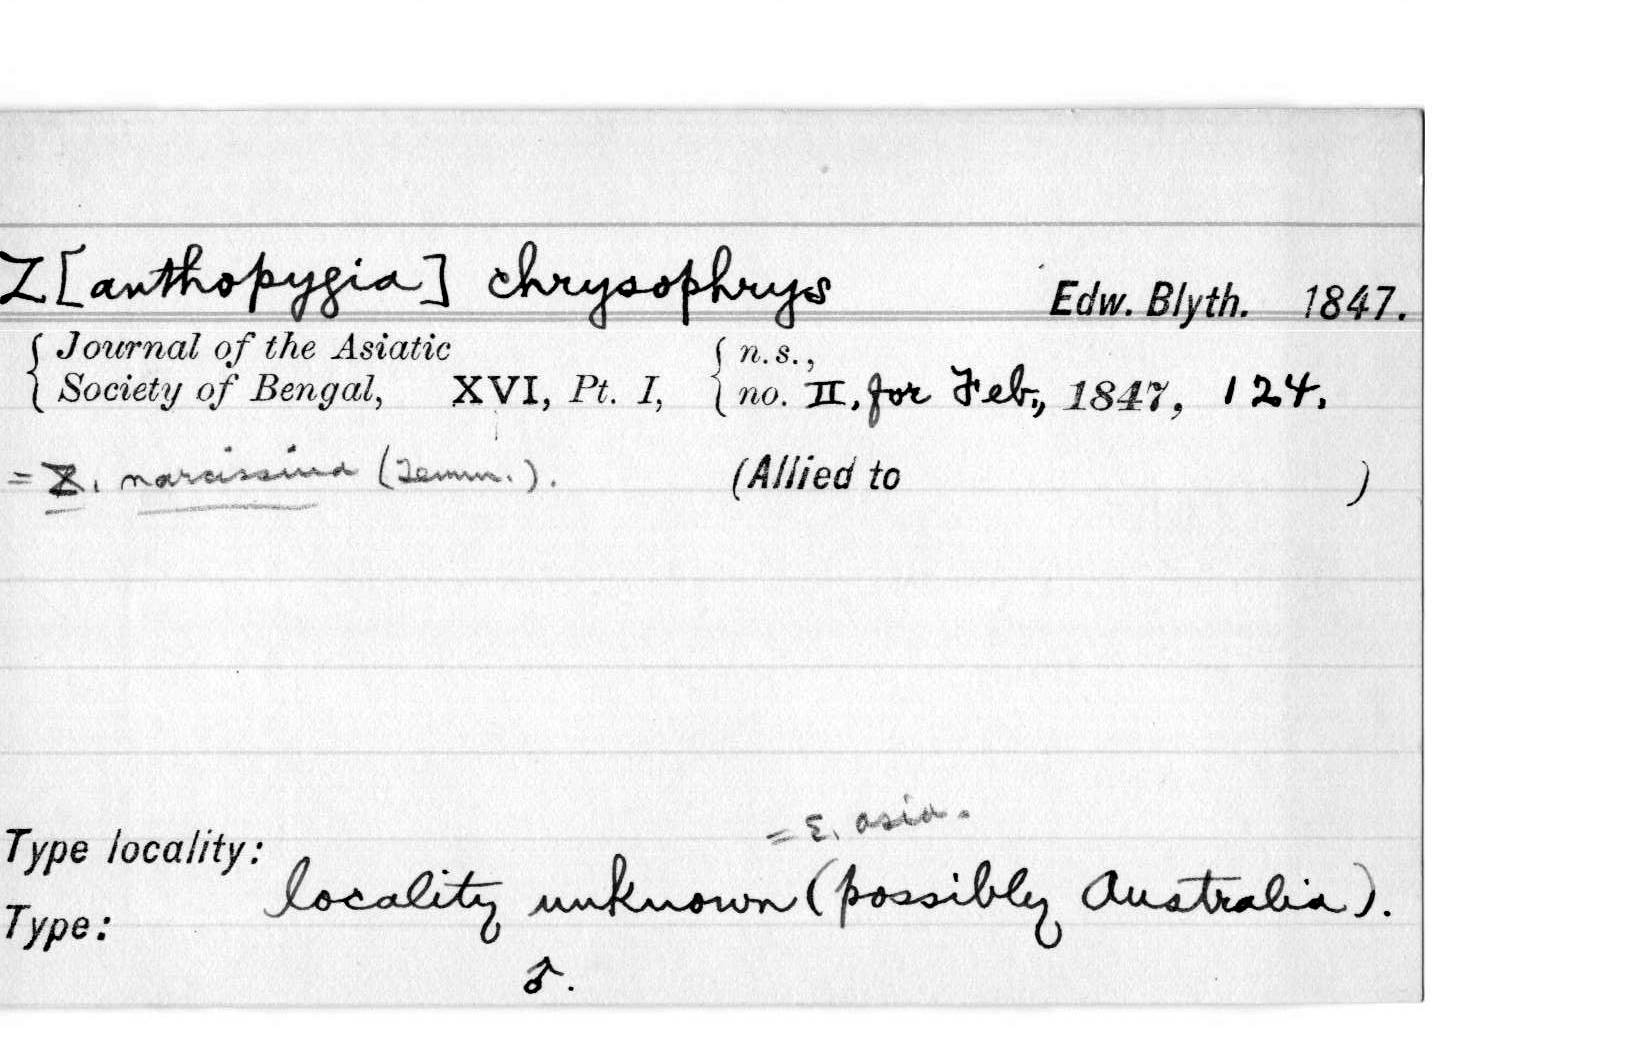 Z[anthopygia] chrysophrys Edw. Blyth. 1847.
{ Journal of the Asiatic { n.s.,
{ Society of Bengal, XVI, Pt. I, { no. II, for Feb., 1847, 124.
= Z. narcissina (Temm.). (Allied to )
= E. asia.
Type locality:
locality unknown (possibly Australia).
Type:
♂.